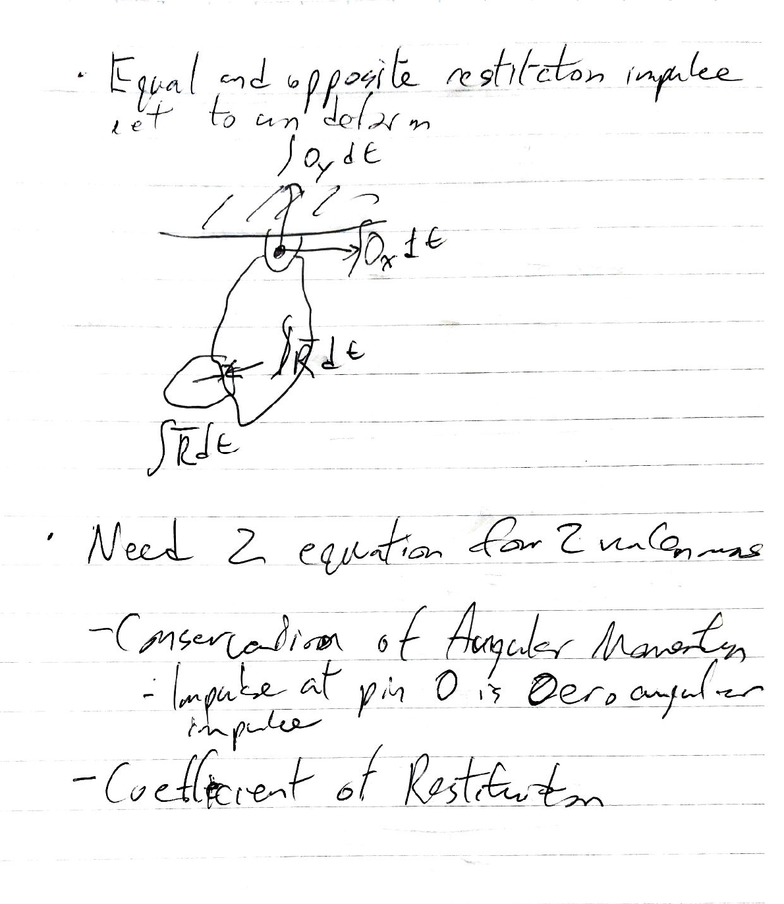 · Equal and opposite restitcton impulse
act to un deform
∫ Oy dt
∫ Ox dt
∫ R̅ dt
∫ R̅ dt
· Need 2 equation for 2 unknowns
- Conservation of Angular Momentum
- Impulse at pin O is zero angular
impulse
- Coefficient of Restitution